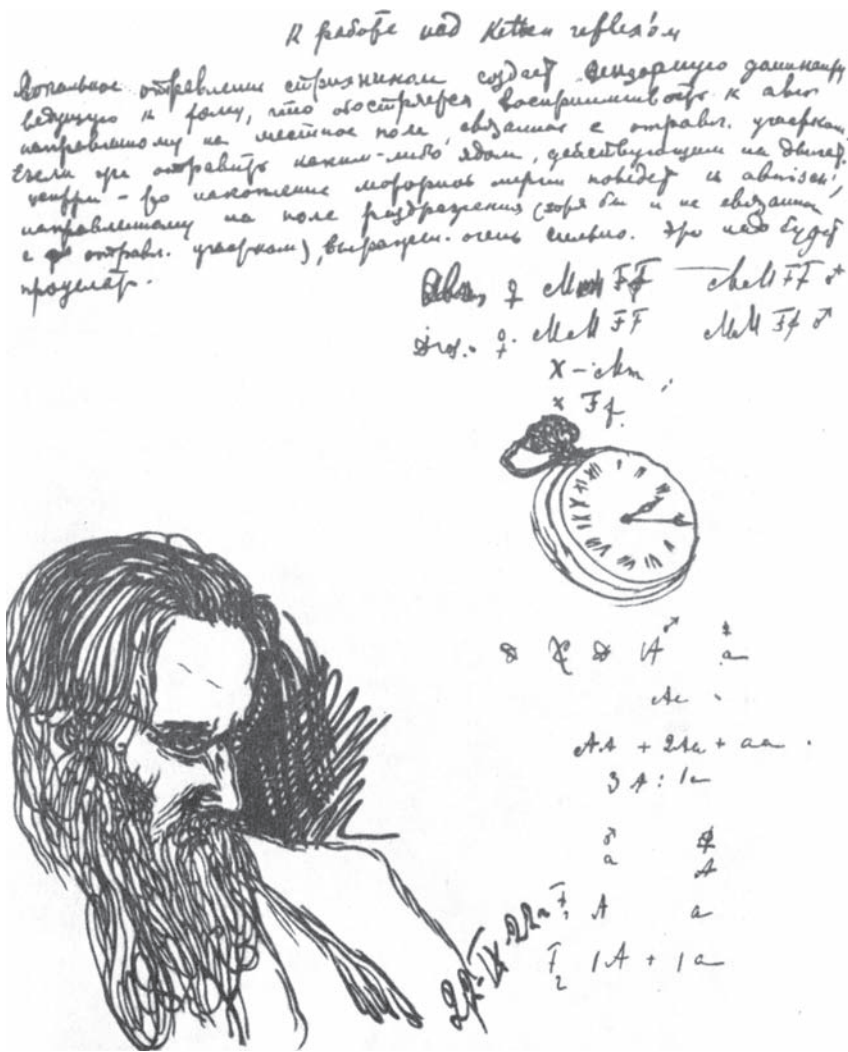 К работе над Ketten reflex'ом
Локальное отравление стрихнином создает сензорную доминанту,
ведущую к тому, что обостряется восприимчивость к
направленному на местное поле, связанное с отравл. участком.
Если же отравить каким-либо ядом, действующим на двигат.
центры - то накопление моторной энергии поведет к
направленному на поле раздражения (хотя бы и не связанным
с отравл. участком), выражен. очень сильно. Это надо будет
проделать.
♀ FF MM FF ♂
♀ MM FF MM Ff ♂
X - Mm ;
x Ff.
XII I II III V VI VII VIII IX X XI
A ♂ a
Aa
AA + 2Aa + aa .
3A : 1a
♂ ♀
a A
F1 A a
F2 1A + 1a
22-IX-22